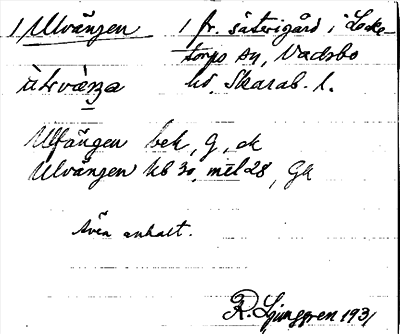 1 Ulvängen 1 fr. säterigård i Locke-
torps sn, Vadsbo
hd, Skarab. l.
Ulfängen bek, G, ck
Ulvängen kb 30, mtl 28, Gk
Även anhalt.
R. Ljunggren 1931